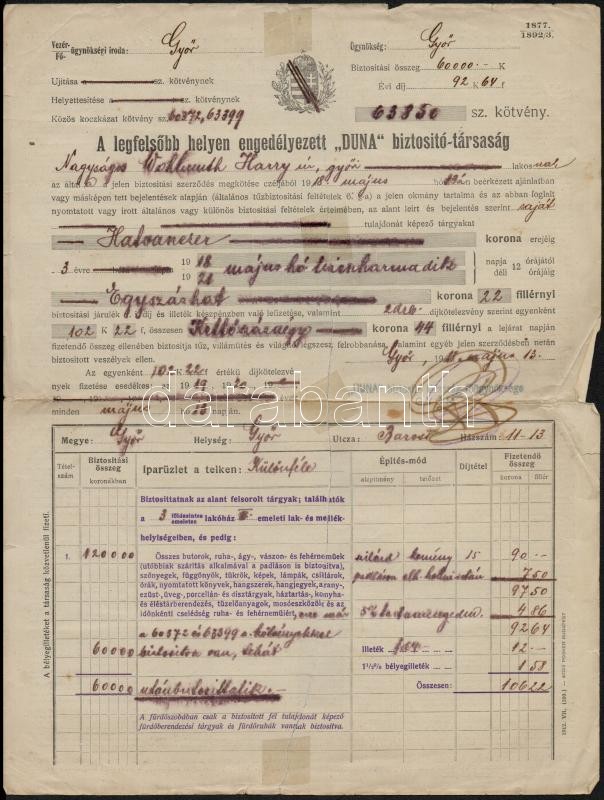 1877.
1892/3.
Vezér-
Fő- ügynökségi iroda: Győr
Ügynökség: Győr
Biztositási összeg 60000.- K
Ujitása sz. kötvénynek
Évi díj 92 K 64 f
Helyettesitése a sz. kötvénynek
Közös kockázat kötvény sz. 60372, 63399
63850 sz. kötvény.
A legfelsőbb helyen engedélyezett „DUNA” biztositó-társaság
Nagyságos Wohlmuth Harry úr, győr lakosnak
az által a jelen biztositási szerződés megkötése czéljából 1918 május hó 13án beérkezett ajánlatban
vagy másképen tett bejelentések alapján (általános tűzbiztositási feltételek 6. §-a) a jelen okmány tartalma és az abban foglalt
nyomtatott vagy irott általános vagy különös biztositási feltételek értelmében, az alant leirt és bejelentés szerint saját
tulajdonát képező tárgyakat
Hatvanezer korona erejéig
3 évre 1918 május hó tizenharmadik napja déli 12 órájától
1921 órájáig
Egyszázhat korona 22 fillérnyi
biztositási járulék díj és illeték készpénzben való lefizetése, valamint 2 drb dijkötelezvény
102 K 22 f, összesen Kettőszáznégy korona 44 fillérnyi a lejárat napján
fizetendő összeg ellenében biztositja tűz, villámütés és világitó légszesz, felrobbanása, valamint egyéb jelen szerződésben nerán
biztositott veszélyek ellen.
Győr, 1918 május 13.
Az egyenként 102 K 22 f értékű dijkötelezvé-
nyek fizetése esedékes: 1919, 1920, 19 évi
minden május hó 13 napján.
DUNA
Megye: Győr Helység: Győr Utcza: Baross Házszám: 11-13
Tétel-
szám
Biztositási
összeg
koronákban
Iparüzlet a telken: Különféle
Épités-mód
alapitmény tetőzet
Díjtétel
Fizetendő
összeg
korona fillér
Biztosittatnak az alant felsorolt tárgyak; találhatók
a 3 földszintes
emeletes lakóház II emeleti lak- és mellék-
helyiségeiben, és pedig:
1. 120000 Összes butorok, ruha-, ágy-, vászon- és fehérneműek szilárd kemény 15 90 -
(utóbbiak száritás alkalmával a padláson is biztositva), padláson elh. 7 50
szőnyegek, függönyök, tükrök, képek, lámpák, csillárok,
órák, nyomtatott könyvek, hangszerek, hangjegyek, arany- és 97 50
ezüst-, üveg-, porcellán- és disztárgyak, háztartás-, konyha-
és éléstárberendezés, tüzelőanyagok, mosóeszközök és az
időnkénti cselédség ruha- és fehérneműiért, 5% 4 86
a 60372 és 63399 a. kötvényekkel 92 64
60000 biztositva van, tehát illeték 12 -
1½% bélyegilleték 1 58
60000 utánbiztosittatik Összesen: 106 22
A fürdőszobában csak a biztositott fél tulajdonát képező
fürdőberendezési tárgyak és fürdőruhák vannak biztositva.
A bélyegilletéket a társaság közvetlenül fizeti.
darabanth